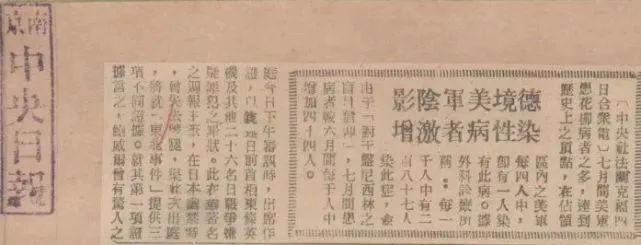 南京
中央日報
德境美軍陰影
染性病者激增
〔中央社法蘭克福四
日合衆電〕七月間美軍
患花柳病者之多，達到
歷史上之頂點，在佔領
區內之美軍
每四人中，
即有一人染
有此病。據
外科診療所
稱：每一
千人中有二
百八十七人
染此症，僉
由于「對于盤尼西林之
盲目信仰」，七月間患
病者較六月間每千人中
增加四十四人。
庭今日下午審訊時，出席作
證，以證明日前首相東條英
機及其他二十六名日戰爭嫌
疑罪犯之罪狀。此在華著名
之週報主筆，在日本囚禁時
，曾失去雙腿，渠此次出庭
，將就「東北事件」提供三
項不同證據。就其第一項證
據言之，鮑威爾曾有驚人之